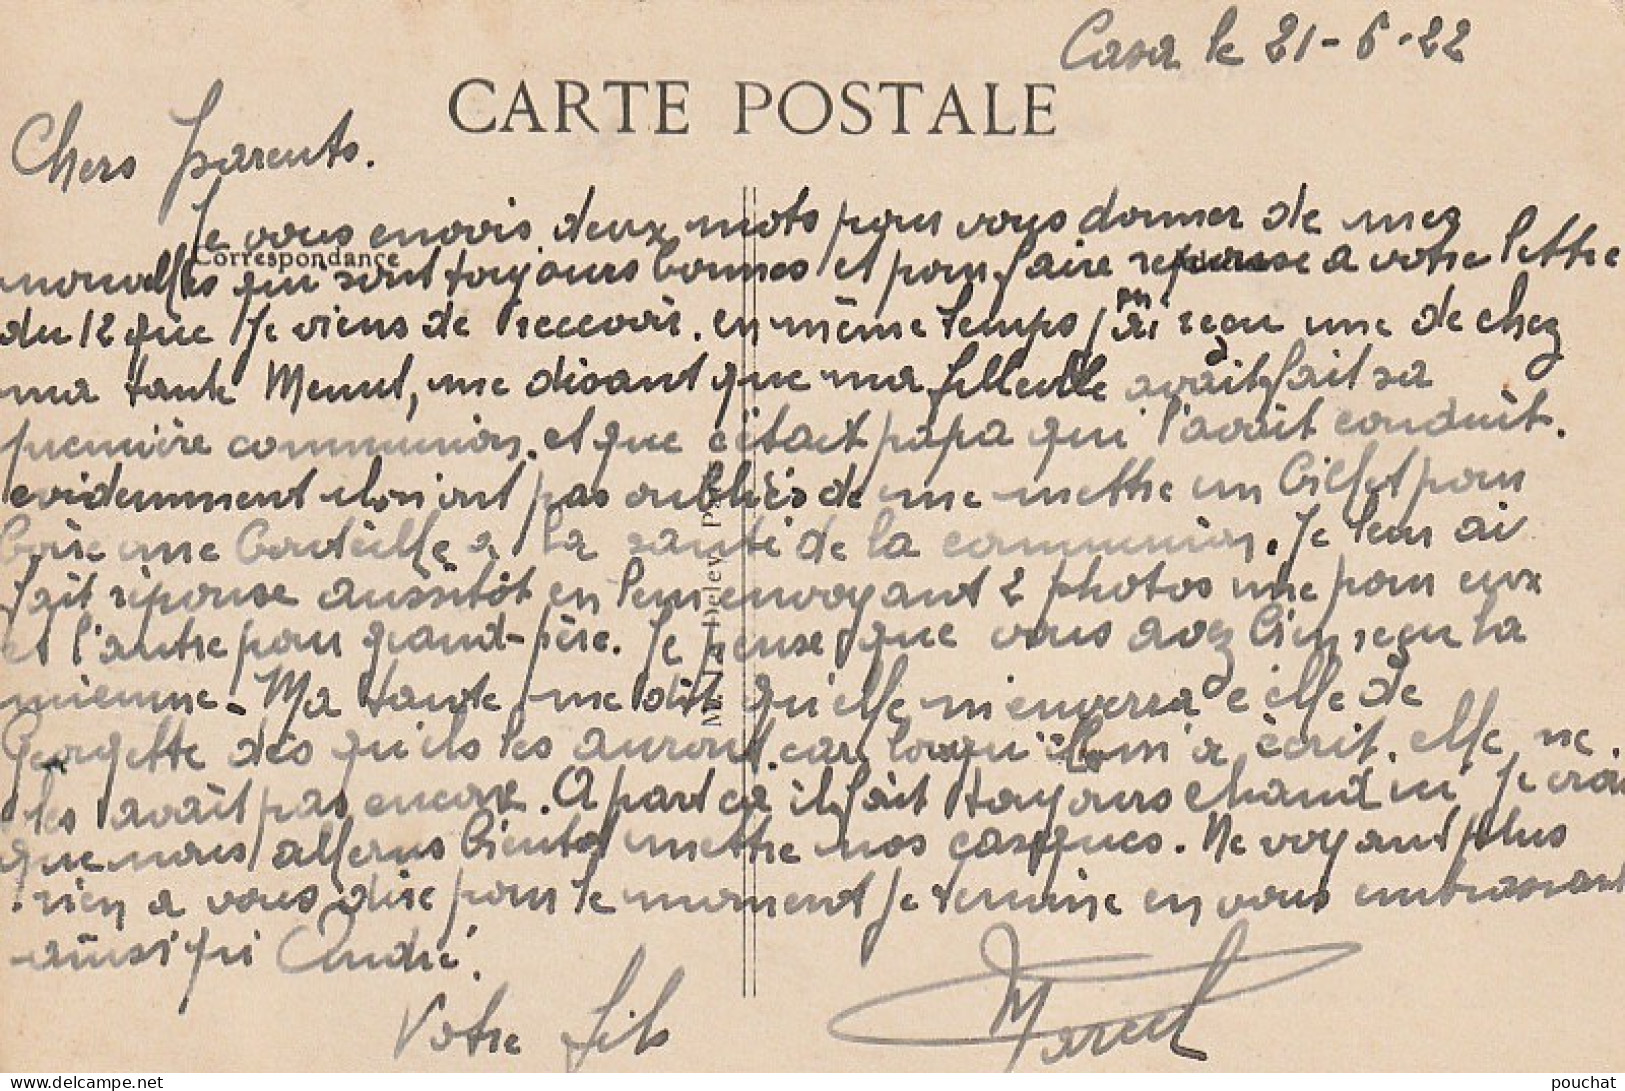 Casa le 21-6-22
CARTE POSTALE
Chers parents.
Je vous enovis deux mots pour vous donner de mes
Correspondance
nouvelles qui sont toujours bonnes et pour faire reponse a votre lettre
du 12 que je viens de recevoir. en même temps j'ai reçu une de chez
ma tante Menut, me disant que ma filleulle avait fait sa
première communion. et que c'était papa qui l'avait conduit.
evidemment ils n'ont pas oubliés de me mettre un billet pour
boire une bouteille a la santé de la communion. Je leur ai
fait réponse aussitôt en leur envoyant 2 photos une pour eux
et l'autre pour grand-père. Je pense que vous avez bien reçu la
mienne. Ma tante me dit qu'elle m'enverra celle de
Georgette dès qu'ils les auront. car losqu'elle m'a écrit. elle ne
les avait pas encore. A part ca il fait toujours chaud ici je crois
que nous allerons bientot mettre nos casques. Ne voyant plus
rien a vous dire pour le moment je termine en vous embrassant
aussi qui André.
Votre fils
Marcel
Delev
https://www.delcampe.net
pouchat